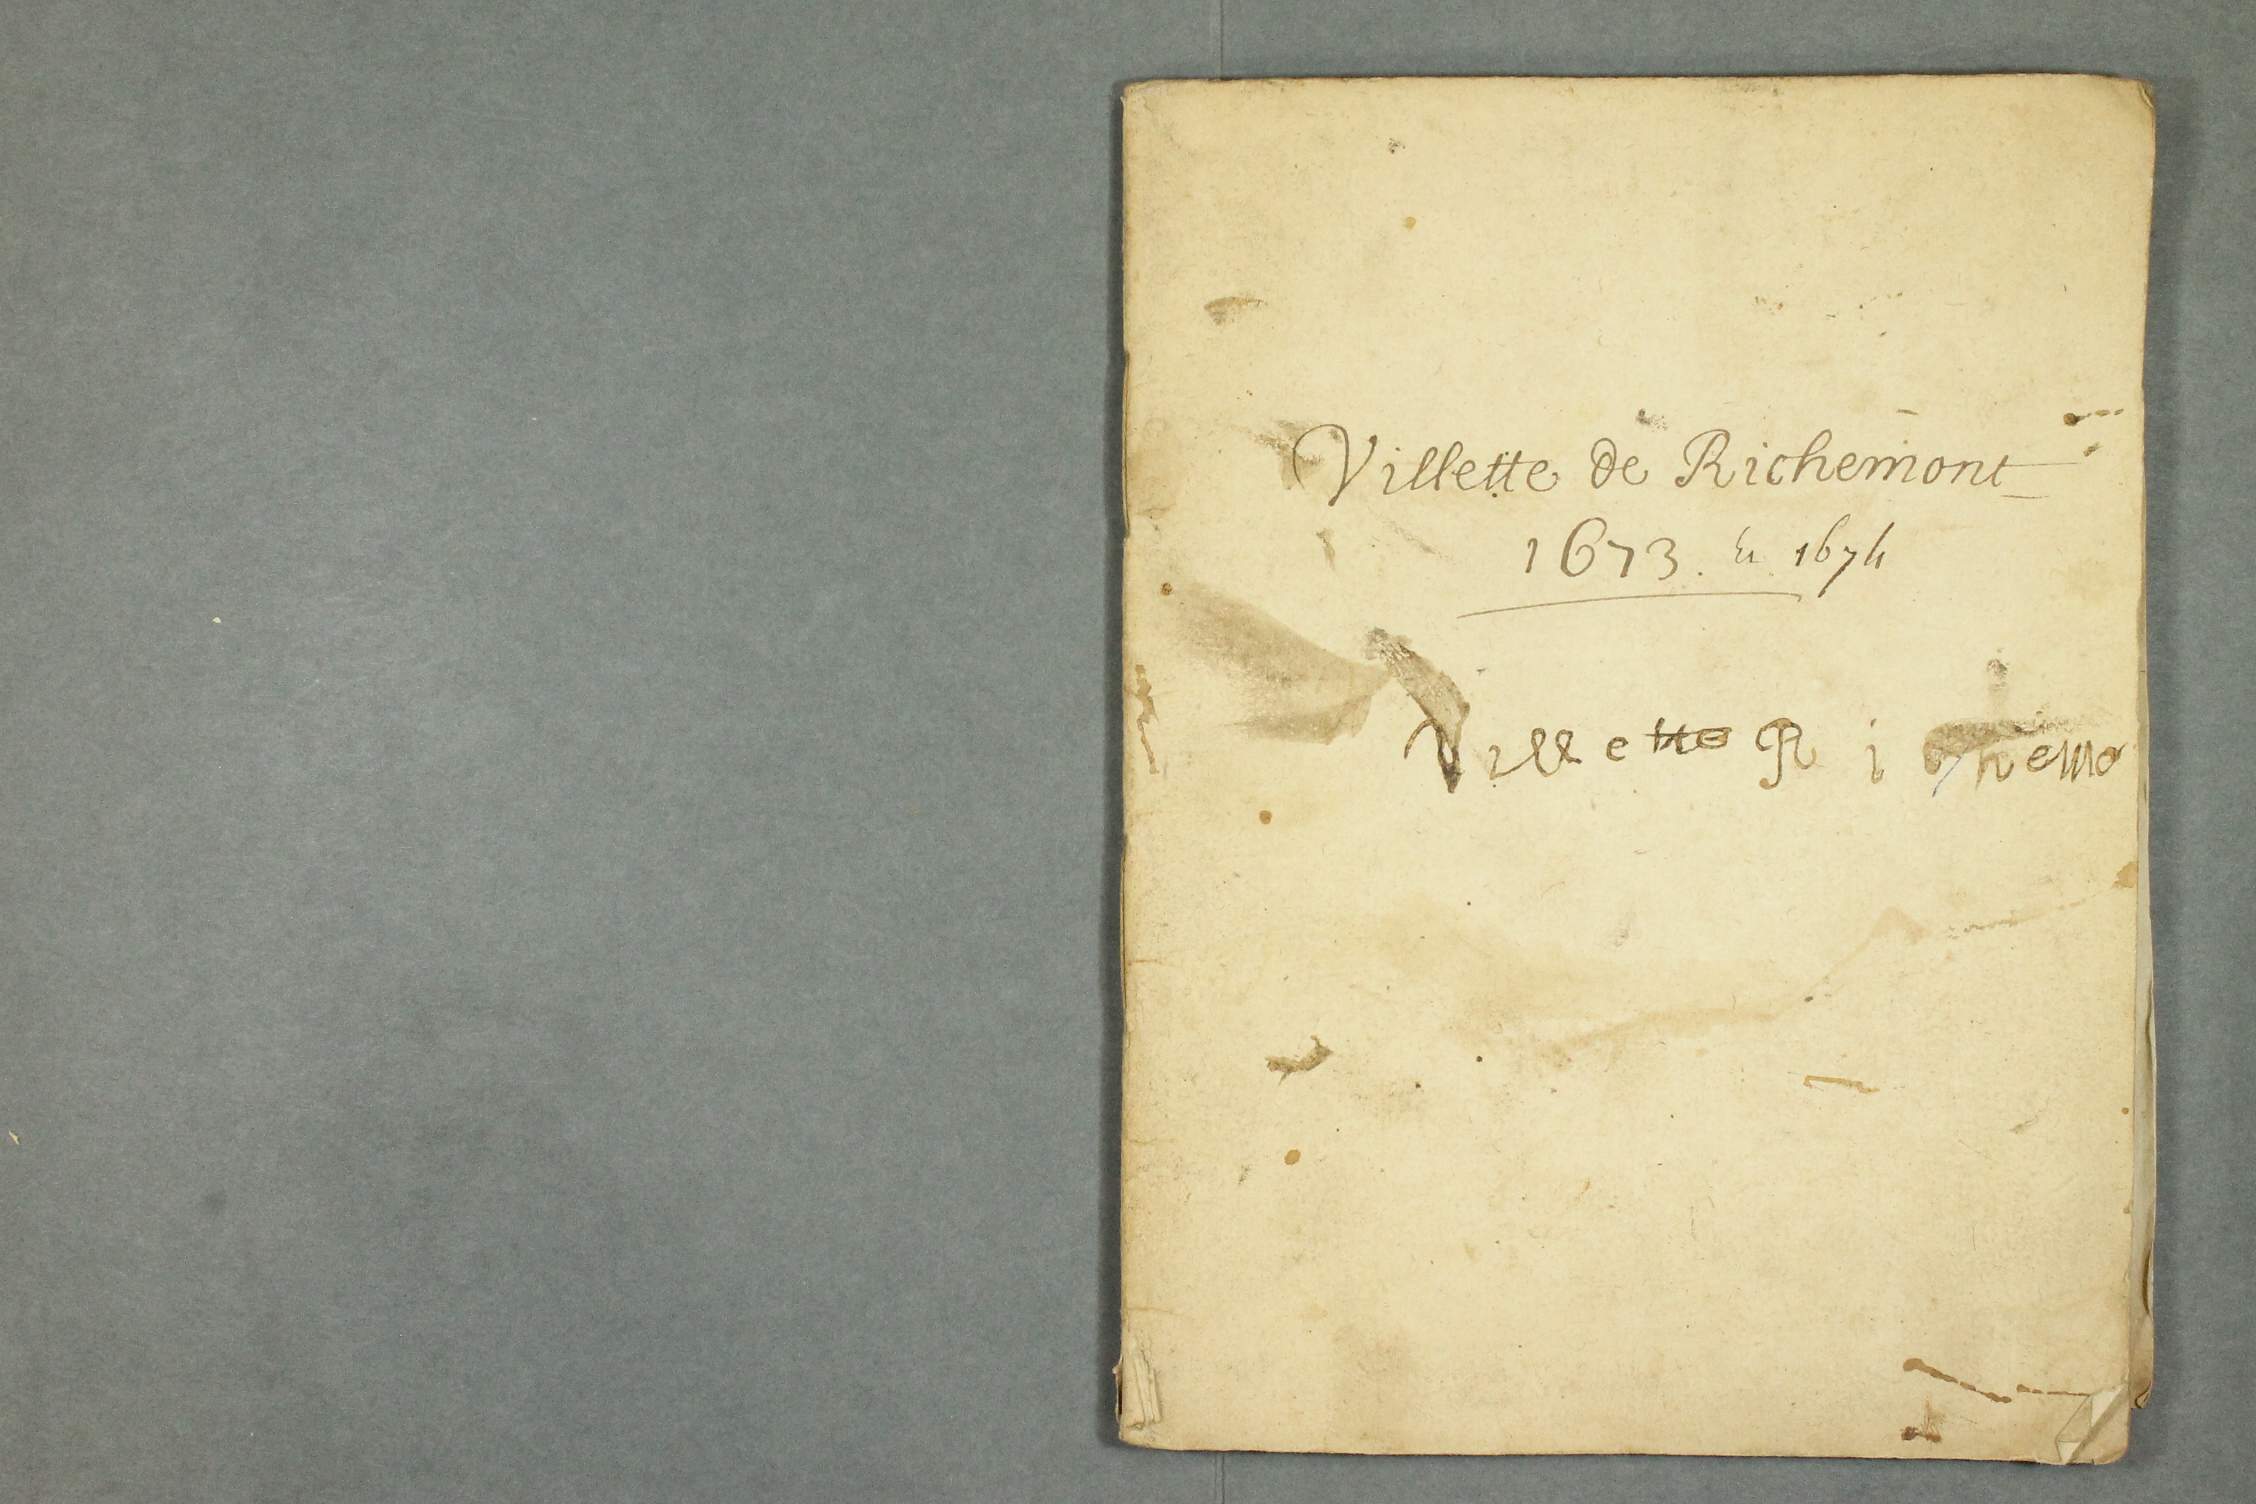 Villette de Richemont
1673. et 1674
Villette Richemo